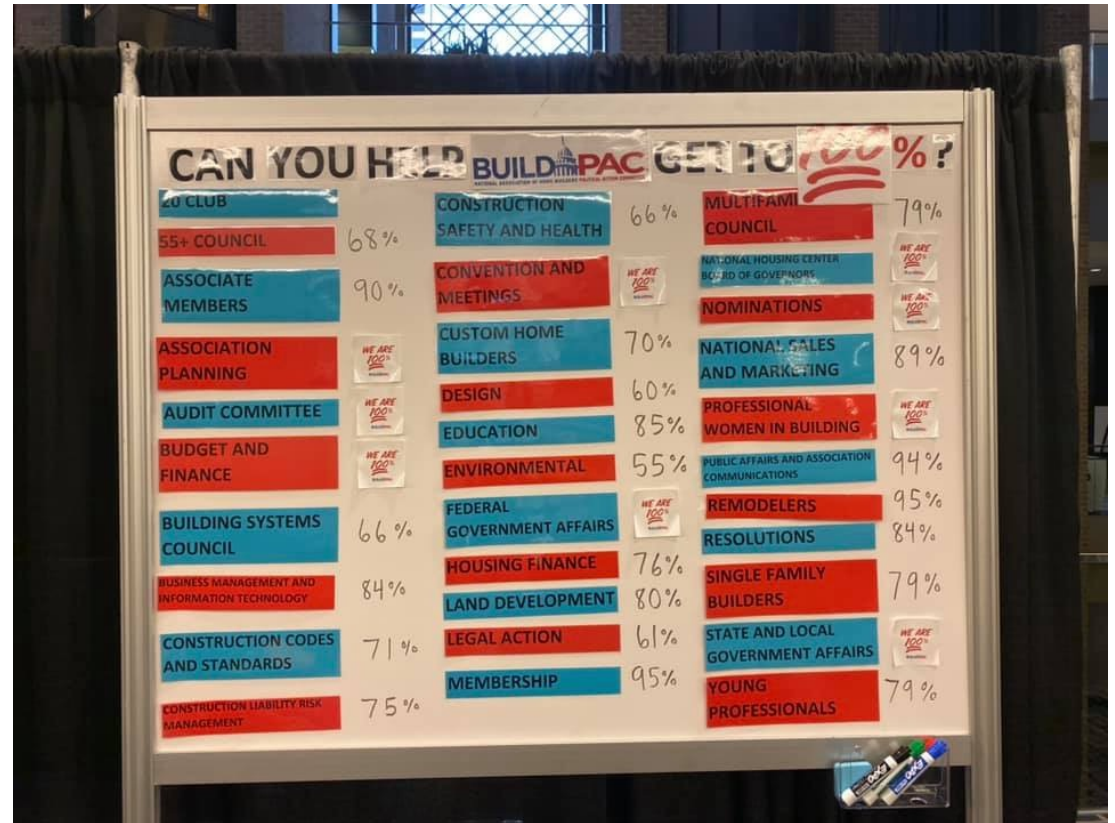 CAN YOU HELP BUILD PAC GET TO 100 % ?
NATIONAL ASSOCIATION OF HOME BUILDERS POLITICAL ACTION COMMITTEE
20 CLUB
55+ COUNCIL 68%
ASSOCIATE
MEMBERS 90%
ASSOCIATION
PLANNING
WE ARE
100%
AUDIT COMMITTEE
WE ARE
100%
BUDGET AND
FINANCE
WE ARE
100%
BUILDING SYSTEMS
COUNCIL 66%
BUSINESS MANAGEMENT AND
INFORMATION TECHNOLOGY 84%
CONSTRUCTION CODES
AND STANDARDS 71%
CONSTRUCTION LIABILITY RISK
MANAGEMENT 75%
CONSTRUCTION
SAFETY AND HEALTH 66%
CONVENTION AND
MEETINGS
WE ARE
100%
CUSTOM HOME
BUILDERS 70%
DESIGN 60%
EDUCATION 85%
ENVIRONMENTAL 55%
FEDERAL
GOVERNMENT AFFAIRS
WE ARE
100%
HOUSING FINANCE 76%
LAND DEVELOPMENT 80%
LEGAL ACTION 61%
MEMBERSHIP 95%
MULTIFAMI
COUNCIL 79%
NATIONAL HOUSING CENTER
BOARD OF GOVERNORS
WE ARE
100%
NOMINATIONS
WE ARE
100%
NATIONAL SALES
AND MARKETING 89%
PROFESSIONAL
WOMEN IN BUILDING
WE ARE
100%
PUBLIC AFFAIRS AND ASSOCIATION
COMMUNICATIONS 94%
REMODELERS 95%
RESOLUTIONS 84%
SINGLE FAMILY
BUILDERS 79%
STATE AND LOCAL
GOVERNMENT AFFAIRS
WE ARE
100%
YOUNG
PROFESSIONALS 79%
EXPO
EXPO